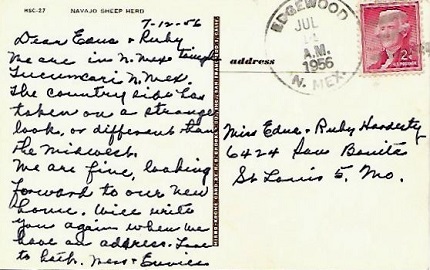 HSC-27 NAVAJO SHEEP HERD
7-12-56
Dear Edna & Ruby
We are in N. Mex
Tucumcari N. Mex.
The country side has
taken on a strange
look, or different than
the Midwest.
We are fine, looking
forward to our new
home. Will write
you again when we
have an address. Love
to both.
address
EDGEWOOD
JUL
A.M.
1956
N. MEX.
2¢
Miss Edna & Ruby Hardesty
6424 San Bonita
St Louis 5, Mo.